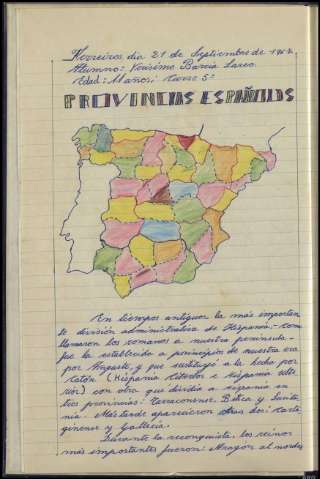 Herreiros, día 21 de Septiembre de 196
Alumno: Verísimo Barcia Lareo.
Edad: 11 años; Curso 5º
PROVINCIAS ESPAÑOLAS
En tiempos antiguos la más importan
te división administrativa de Hispania-como
llamaron los romanos a nuestra península-
fue la establecida a principios de nuestra era
por Augusto, y que sustituyó a la hecha por
Catón (Hispania Citerior e Hispania Ulte
rior) con otra que dividía a Hispania en
tres provincias: Tarraconense, Bética y Lusita
nia. Más tarde aparecieron otras dos: Carta
ginense y Gallecia.
Durante la reconquista, los reinos
más importantes fueron: Aragón al nordes